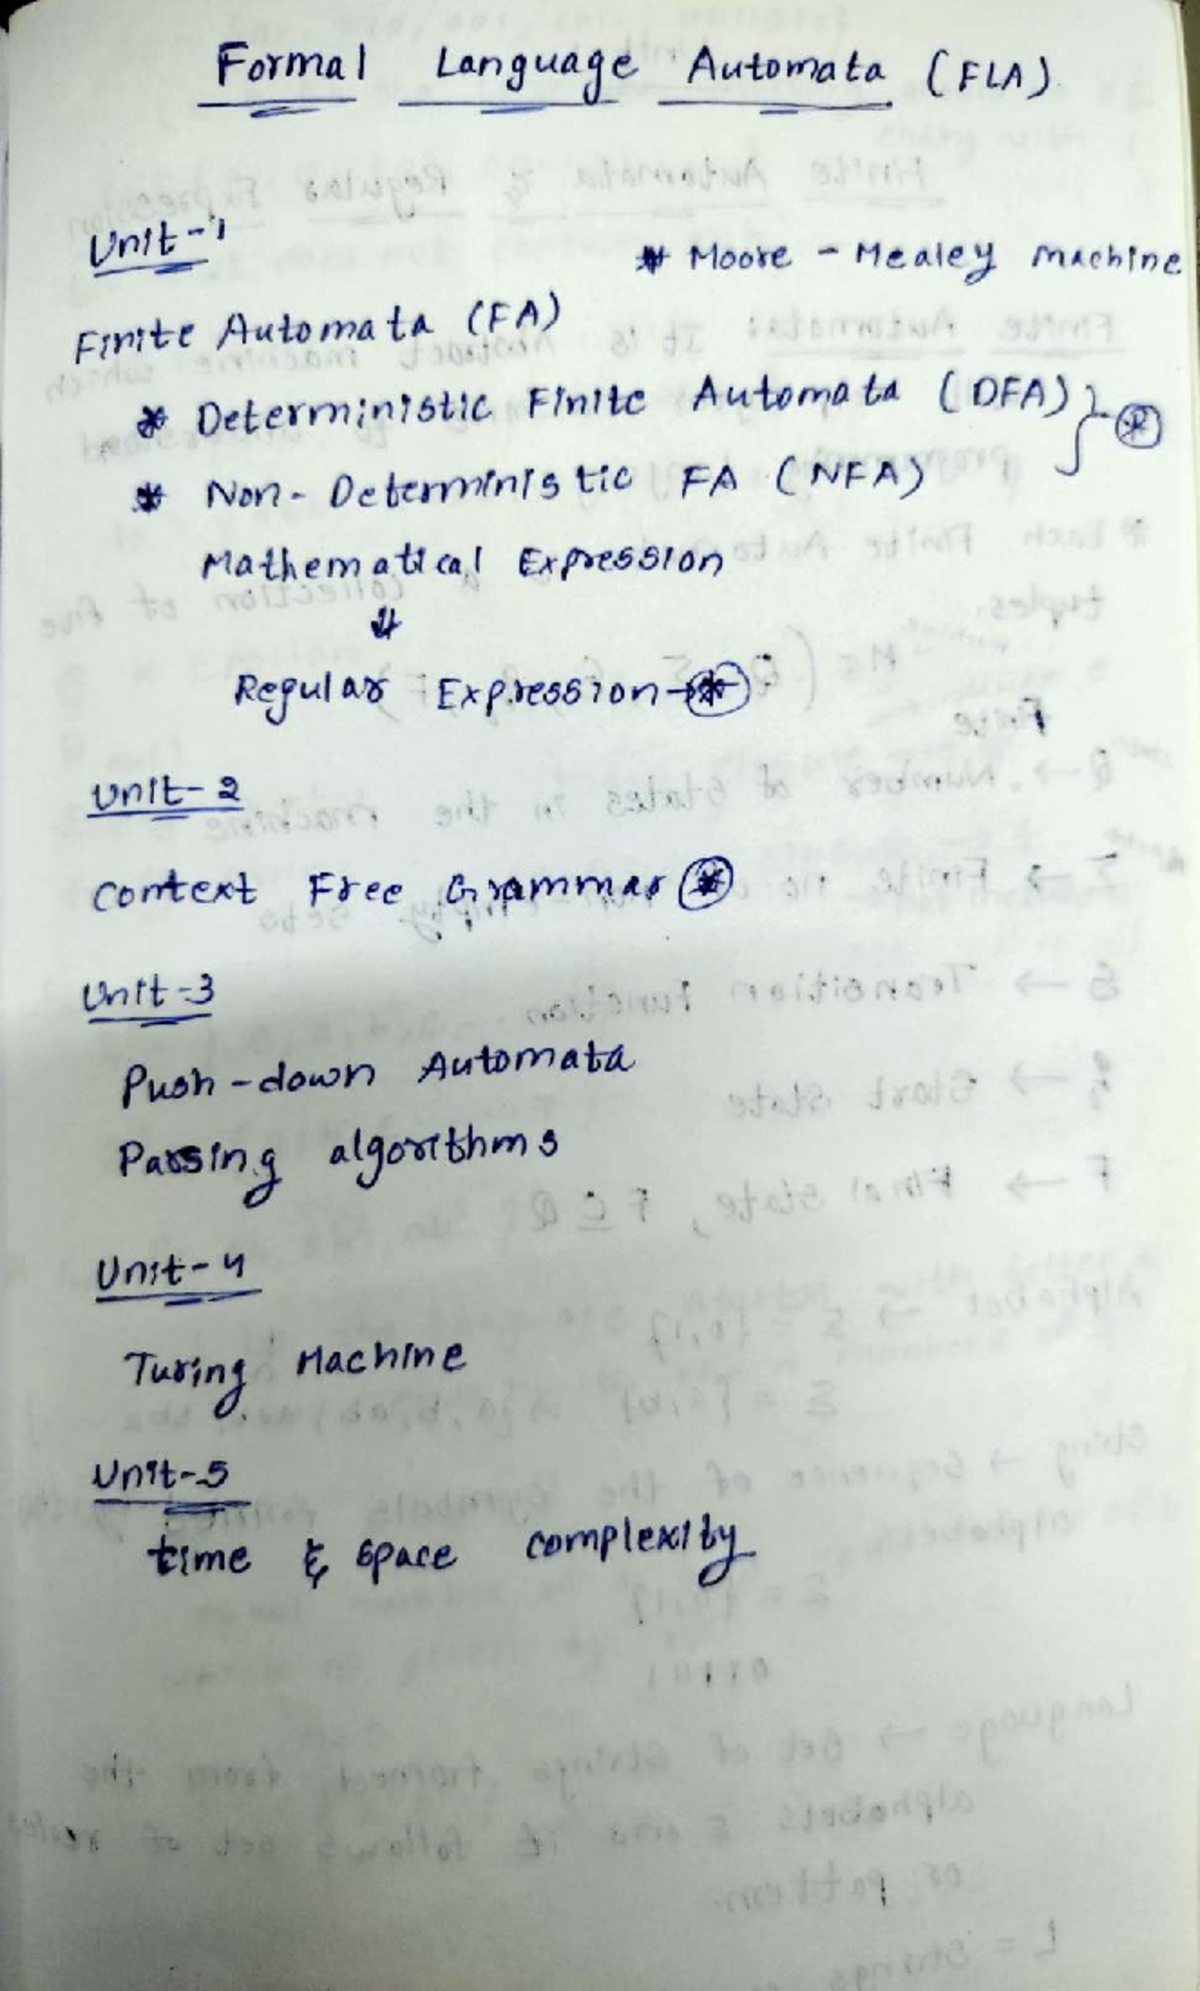 Formal Language Automata (FLA)
Unit-1
* Moore - Mealey machine
Finite Automata (FA)
* Deterministic Finite Automata (DFA)
* Non-Deterministic FA (NFA)
Mathematical Expression
⇓
Regular Expression → *
Unit-2
Context Free Grammar *
Unit-3
Push-down Automata
Parsing algorithms
Unit-4
Turing Machine
Unit-5
time & space complexity